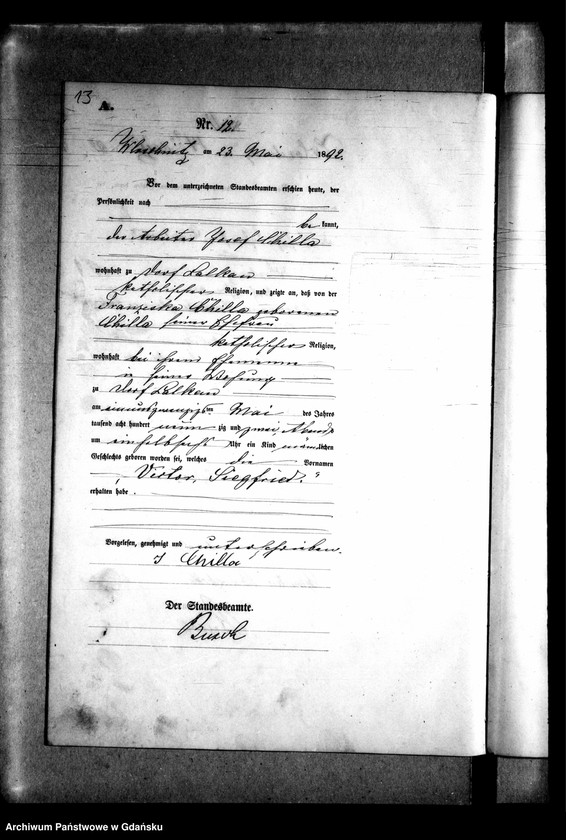 13
A.
Nr. 12.
am 23. Mai 1892.
Vor dem unterzeichneten Standesbeamten erschien heute, der
Persönlichkeit nach
be kannt,
der Arbeiter Josef Chilla
wohnhaft zu Dorf Lalkau
katholischer Religion, und zeigte an, daß von der
Franziska Chilla geborenen
Chilla seiner Ehefrau
katholischer Religion,
wohnhaft bei ihrem Ehemanne
in seiner Wohnung
zu Dorf Lalkau
am Mai des Jahres
tausend acht hundert neun zig und zwei Abends
um einhalbsechs Uhr ein Kind männ lichen
Geschlechts geboren worden sei, welches die Vornamen
„Victor, Siegfried."
erhalten habe.
Vorgelesen, genehmigt und unterschrieben.
J Chilla
Der Standesbeamte.
Busch
Archiwum Państwowe w Gdańsku